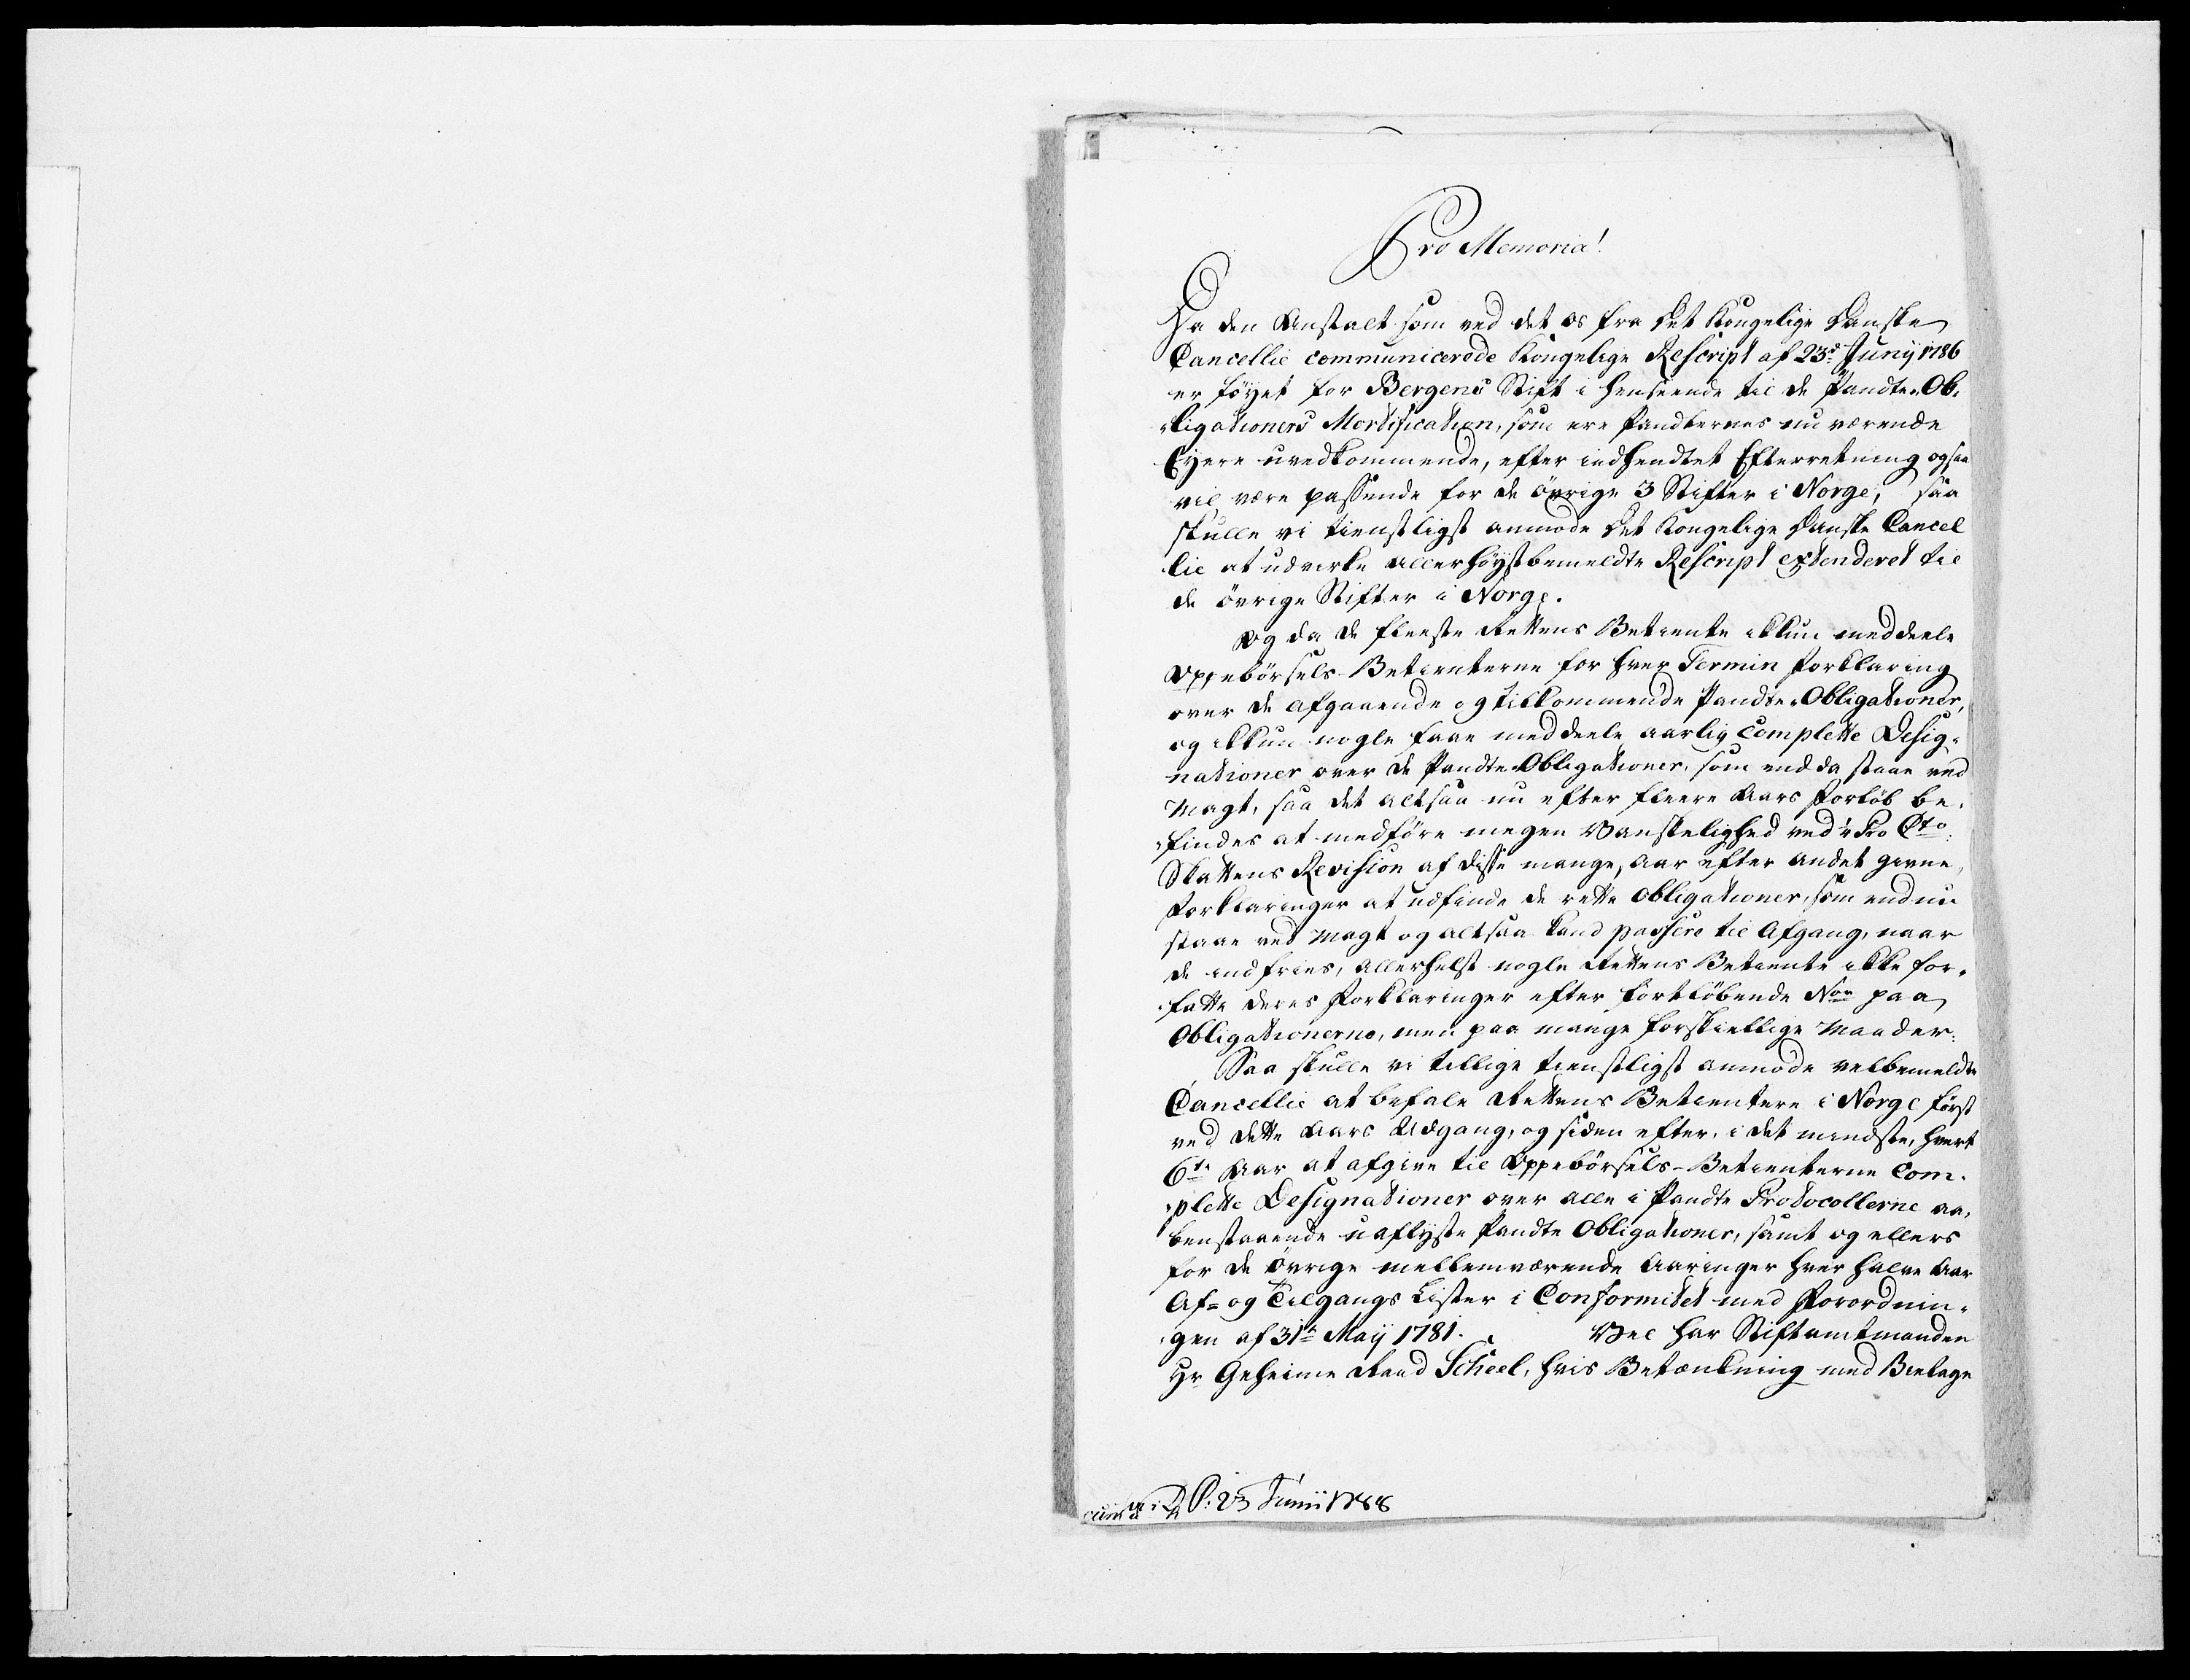 Pro Memoria!
Da den Anstalt som ved det os fra det Kongelige Danske
Cancellie communicerede Kongelige Rescript af 23de Junij 1786
er føyet for Bergens Stift i henseende til de Pandte-Ob-
ligationers Mortification, som ere Pandternes nu værende
Eyere uvedkommende, efter indhendtet Efterretning ogsaa
vil være passende for de övrige 3 Stifter i Norge, saa
skulle vi tienstligst anmode det Kongelige Danske Cancel
lie at udvirke allerhöystbemeldte Rescript extenderet til
de övrige Stifter i Norge.
Og da de fleeste Rettens Betiente ikkun meddeele
Oppebörsels-Betienterne for hver Termin Forklaring
over de afgaaende og tilkommende Pandte-Obligationer,
og ikkun nogle faae meddeele aarlig complette Desig-
nationer over de Pandte-Obligationer, som endda staae ved
Magt, saa det altsaa nu efter fleere Aars Forlöb be-
findes at medføre megen Vanskelighed ved ¼ Pro Cto
Skattens Revision af disse mange, Aar efter andet givne,
Forklaringer at udfinde de rette Obligationer, som endnu
staae ved Magt og altsaa kand passere til Afgang, naar
de indfries, allerhelst nogle Rettens Betiente ikke for-
fatte deres Forklaringer efter fortlöbende Nor paa
Obligationerne, men paa mange forskiellige Maader:
Saa skulle vi tillige tienstligst anmode velbemeldte
Cancellie at befale Rettens Betientere i Norge först
ved dette Aars Udgang, og siden efter, i det mindste, hvert
6te Aar at afgive til Oppebörsels-Betienterne com-
plette Designationer over alle i Pandte Protocollerne aa-
benstaaende uaflyste Pandte Obligationer, samt og ellers
for de övrige mellemværende Aaringer hver halve Aar
Af- og Tilgangs Lister i Conformitet med Forordnin-
gen af 31te Maij 1781. Vel har Stiftamtmanden
Hr Geheime Raad Scheel, hvis Betænkning med Bielage
P: 23 Junii 1788